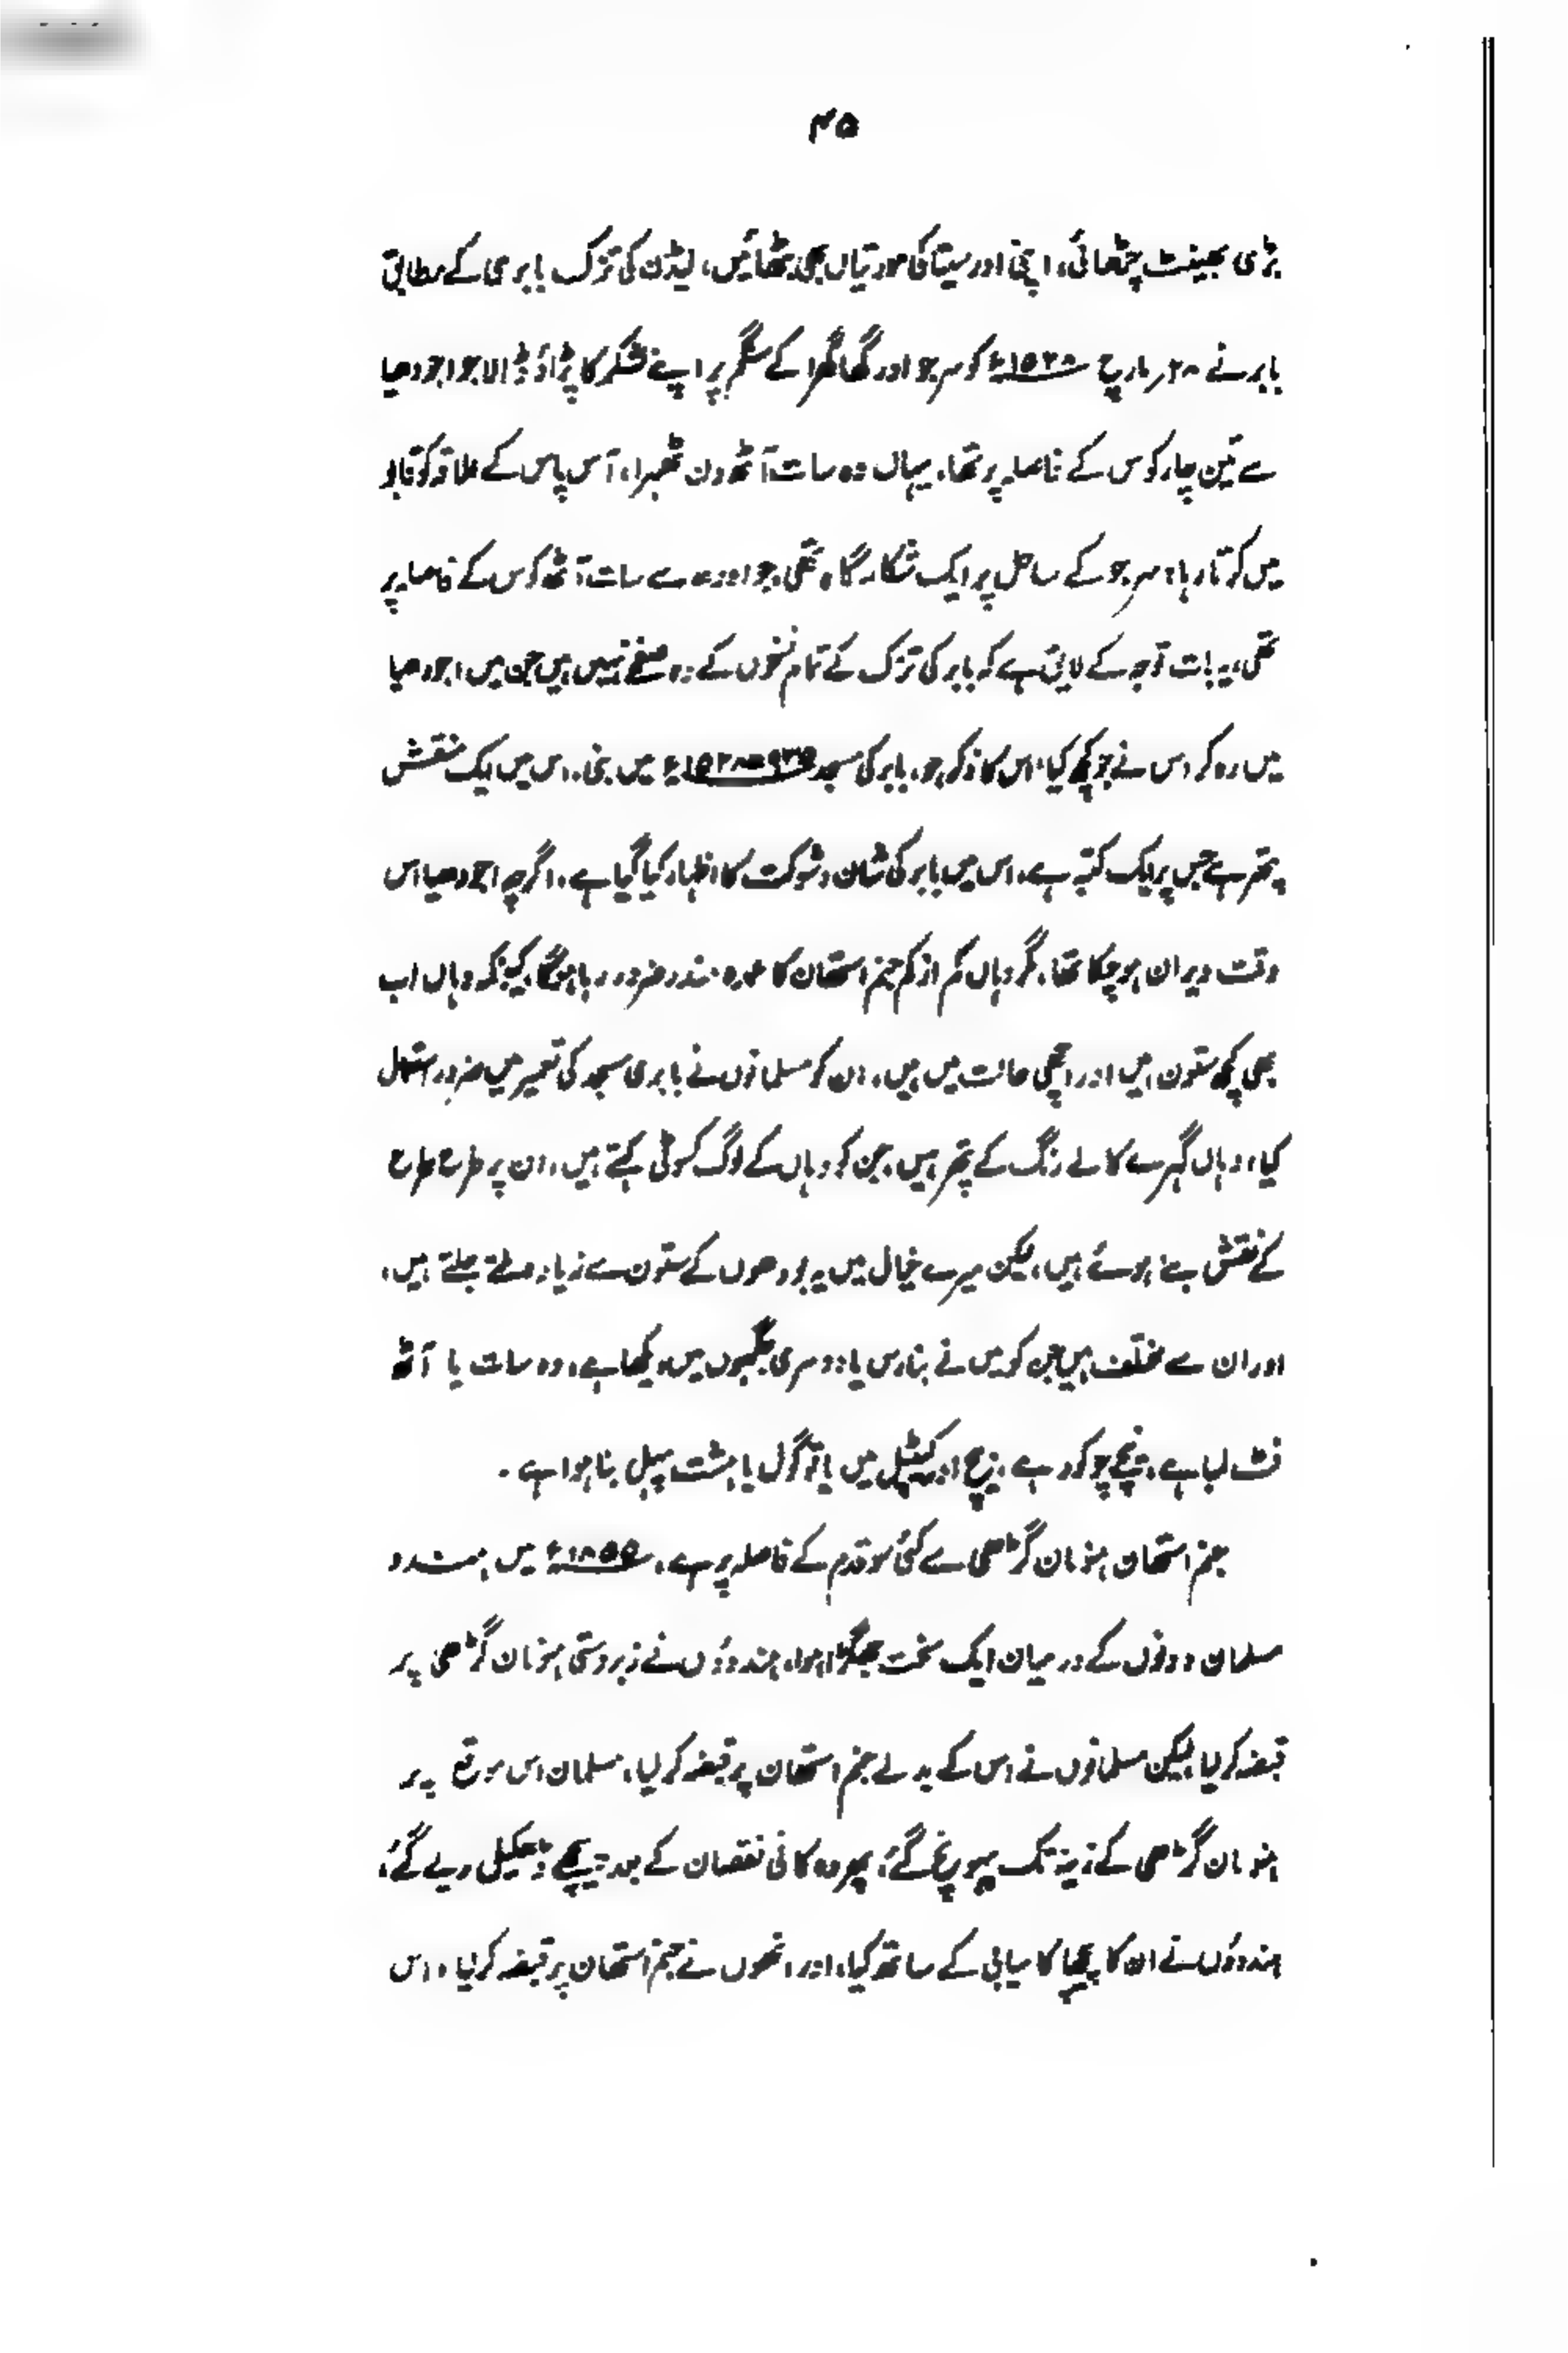 ۴۵
بڑی بھینٹ چڑھائی، اپنی اور سیتا کی مورتیاں بھی بٹھائیں، لیڈن کی تزک بابری کے مطابق
بابر نے ۲۸ر مارچ ۱۵۲۸ء کو سرجو اور گھاگھرا کے سنگم پر اپنے لشکر کا پڑاؤ ڈالا جو اجودھیا
سے تین چار کوس کے فاصلہ پر تھا، یہاں وہ سات آٹھ دن ٹھہرا، آس پاس کے علاقہ کو قابو
میں کرتا رہا، سرجو کے ساحل پر ایک شکار گاہ تھی جو اودھ سے سات آٹھ کوس کے فاصلہ پر
تھی، یہ بات توجہ کے لایق ہے کہ بابر کی تزک کے تمام نسخوں کے وہ صفحے نہیں ہیں جن میں اجودھیا
میں رہ کر اس نے جو کچھ کیا، اس کا ذکر ہو، بابر کی مسجد ۹۳۵ھ ۱۵۲۸ء میں بنی، اس میں ایک منقش
پتھر ہے جس پر ایک کتبہ ہے، اس میں بابر کی شان و شوکت کا اظہار کیا گیا ہے، اگرچہ اجودھیا اس
وقت ویران ہو چکا تھا، مگر وہاں کم از کم جنم استھان کا مندر ضرور رہا ہوگا، کیونکہ وہاں اب
بھی کچھ ستون ہیں اور اچھی حالت میں ہیں، ان کو مسلمانوں نے بابری مسجد کی تعمیر میں ضرور استعمال
کیا، وہاں گہرے کالے رنگ کے پتھر ہیں، جن کو وہاں کے لوگ کسوٹی کہتے ہیں، ان پر طرح طرح
کے نقش بنے ہوئے ہیں، لیکن میرے خیال میں یہ بودھوں کے ستون سے زیادہ ملتے جلتے ہیں،
اور ان سے مختلف ہیں جن کو میں نے بنارس یا دوسری جگہوں میں دیکھا ہے، وہ سات یا آٹھ
فٹ لمبا ہے، نیچے چوکور ہے، بیچ اور کیپٹل میں یا تو گول یا ہشت پہل بنا ہوا ہے۔
جنم استھان ہنومان گڑھی سے کئی سو قدم کے فاصلہ پر ہے، ۱۸۵۵ء میں ہندو
مسلمان دونوں کے درمیان ایک سخت جھگڑا ہوا، ہندوؤں نے زبردستی ہنومان گڑھی پر
قبضہ کر لیا، لیکن مسلمانوں نے اس کے بدلے جنم استھان پر قبضہ کر لیا، مسلمان اس موقع پر
ہنومان گڑھی کے زینہ تک پہونچ گئے، پھر وہ کافی نقصان کے بعد پیچھے ڈھکیل دیے گئے،
ہندوؤں نے ان کا پیچھا کامیابی کے ساتھ کیا، اور انھوں نے جنم استھان پر قبضہ کر لیا، اس